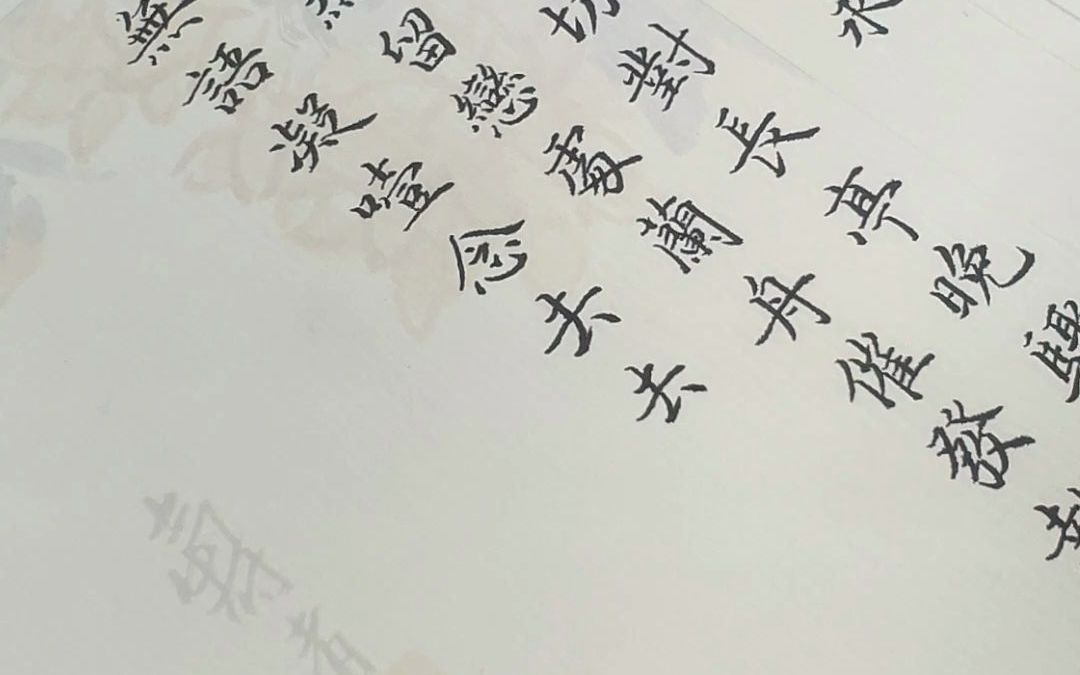 切對長亭晚驟
留戀處蘭舟催發執
無語凝噎念去去